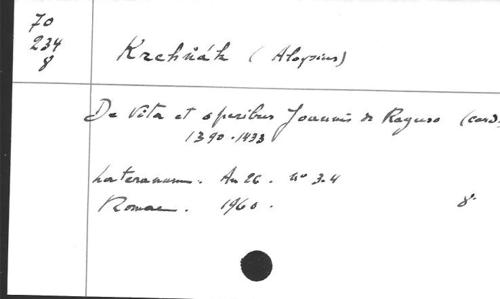 70
234
8
Krchňák (Aloysius)
De Vita et operibus Joannis de Raguso (card.
1390-1433
Lateranum. An 26. nº 3-4
Romae. 1960. 8º